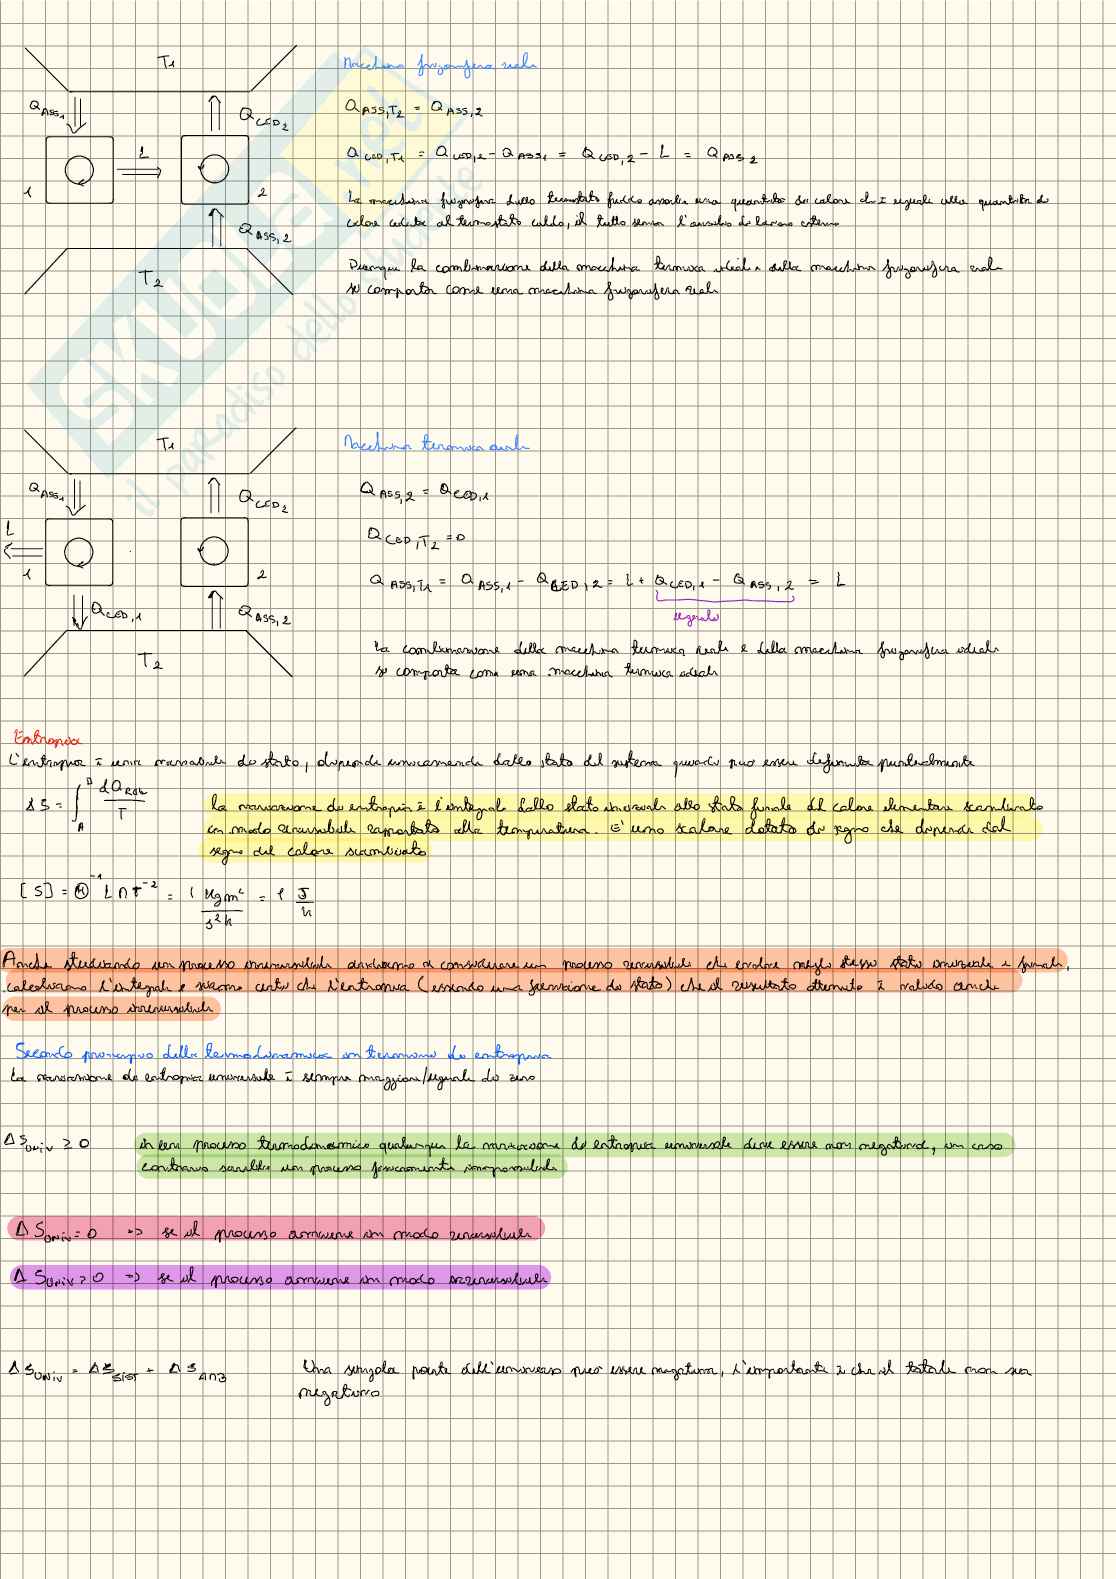 T1
Macchina frigorifera reale
Q ASS1
Q CED2
Q ASS,T2 = Q ASS,2
L
Q CED,T1 = Q CED,2 - Q ASS1 = Q CED,2 - L = Q ASS2
1
2
La macchina frigorifera dallo termostato freddo assorbe una quantità di calore che è uguale alla quantità di
calore ceduta al termostato caldo, il tutto senza l'ausilio di lavoro esterno
Q ASS,2
T2
Dunque la combinazione della macchina termica ideale e della macchina frigorifera reale
si comporta come una macchina frigorifera reale
SKUOLA.net
il paradiso dello studente
T1
Macchina termica reale
Q ASS1
Q CED2
Q ASS,2 = Q CED,1
L
Q CED,T2 = 0
1
2
Q ASS,T1 = Q ASS,1 - Q CED,2 = L + Q CED,1 - Q ASS,2 = L
Q CED,1
Q ASS,2
T2
La combinazione della macchina termica reale e della macchina frigorifera ideale
si comporta come una macchina termica ideale
Entropia
L'entropia è una variabile di stato, dipende unicamente dallo stato del sistema quindi può essere definita puntualmente
ΔS = ∫ A B dQ REV / T
La variazione di entropia è l'integrale dallo stato iniziale allo stato finale del calore elementare scambiato
in modo reversibile rapportato alla temperatura. E' uno scalare dotato di segno che dipende dal
segno del calore scambiato
[S] = Θ⁻¹ L M T⁻² = 1 kg m² / s² k = 1 J / k
Anche studiando un processo irreversibile andiamo a considerare un processo reversibile che evolve negli stessi stato iniziale e finale,
calcoliamo l'integrale e siamo certi che l'entropia (essendo una funzione di stato) che il risultato ottenuto è valido anche
per il processo irreversibile
Secondo principio della termodinamica in termini di entropia
La variazione di entropia universale è sempre maggiore/uguale di zero
ΔS UNIV ≥ 0
in un processo termodinamico qualunque la variazione di entropia universale deve essere non negativa, in caso
contrario sarebbe un processo fisicamente impossibile
ΔS UNIV = 0 -> se il processo avviene in modo reversibile
ΔS UNIV > 0 -> se il processo avviene in modo irreversibile
ΔS UNIV = ΔS SIST + ΔS AMB
Una singola parte dell'universo può essere negativa, l'importante è che il totale non sia
negativo